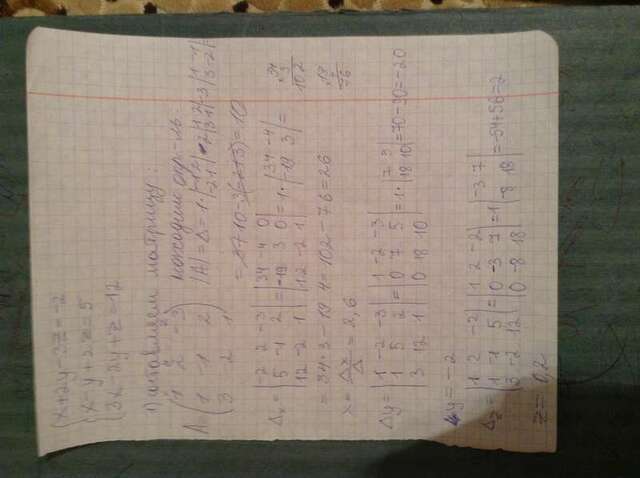 {x+2y-3z=-2
{x-y+2z=5
{3x-2y+z=12
1) составляем матрицу:
A=(1 2 -3
1 -1 2
3 2 1) находим опр-ль.
|A|=Δ=1·|-1 2
-2 1|-2|1 2
3 1|-3|1 -1
3 -2|=
=10
Δx=|-2 2 -3
5 -1 2
12 -2 1|=|34 -4 0
-19 3 0
12 -2 1|=1·|34 -4
-19 3|=
=34·3-19·4=102-76=26
34
3
102
19
4
76
x=Δx/Δ=2,6
Δy=|1 -2 -3
1 5 2
3 12 1|=|1 -2 -3
0 7 5
0 18 10|=1·|7 5
18 10|=70-90=-20
y=-2
Δz=|1 2 -2
1 -1 5
3 -2 12|=|1 2 -2
0 -3 7
0 -8 18|=1|-3 7
-8 18|=-54+56=2
z=0,2